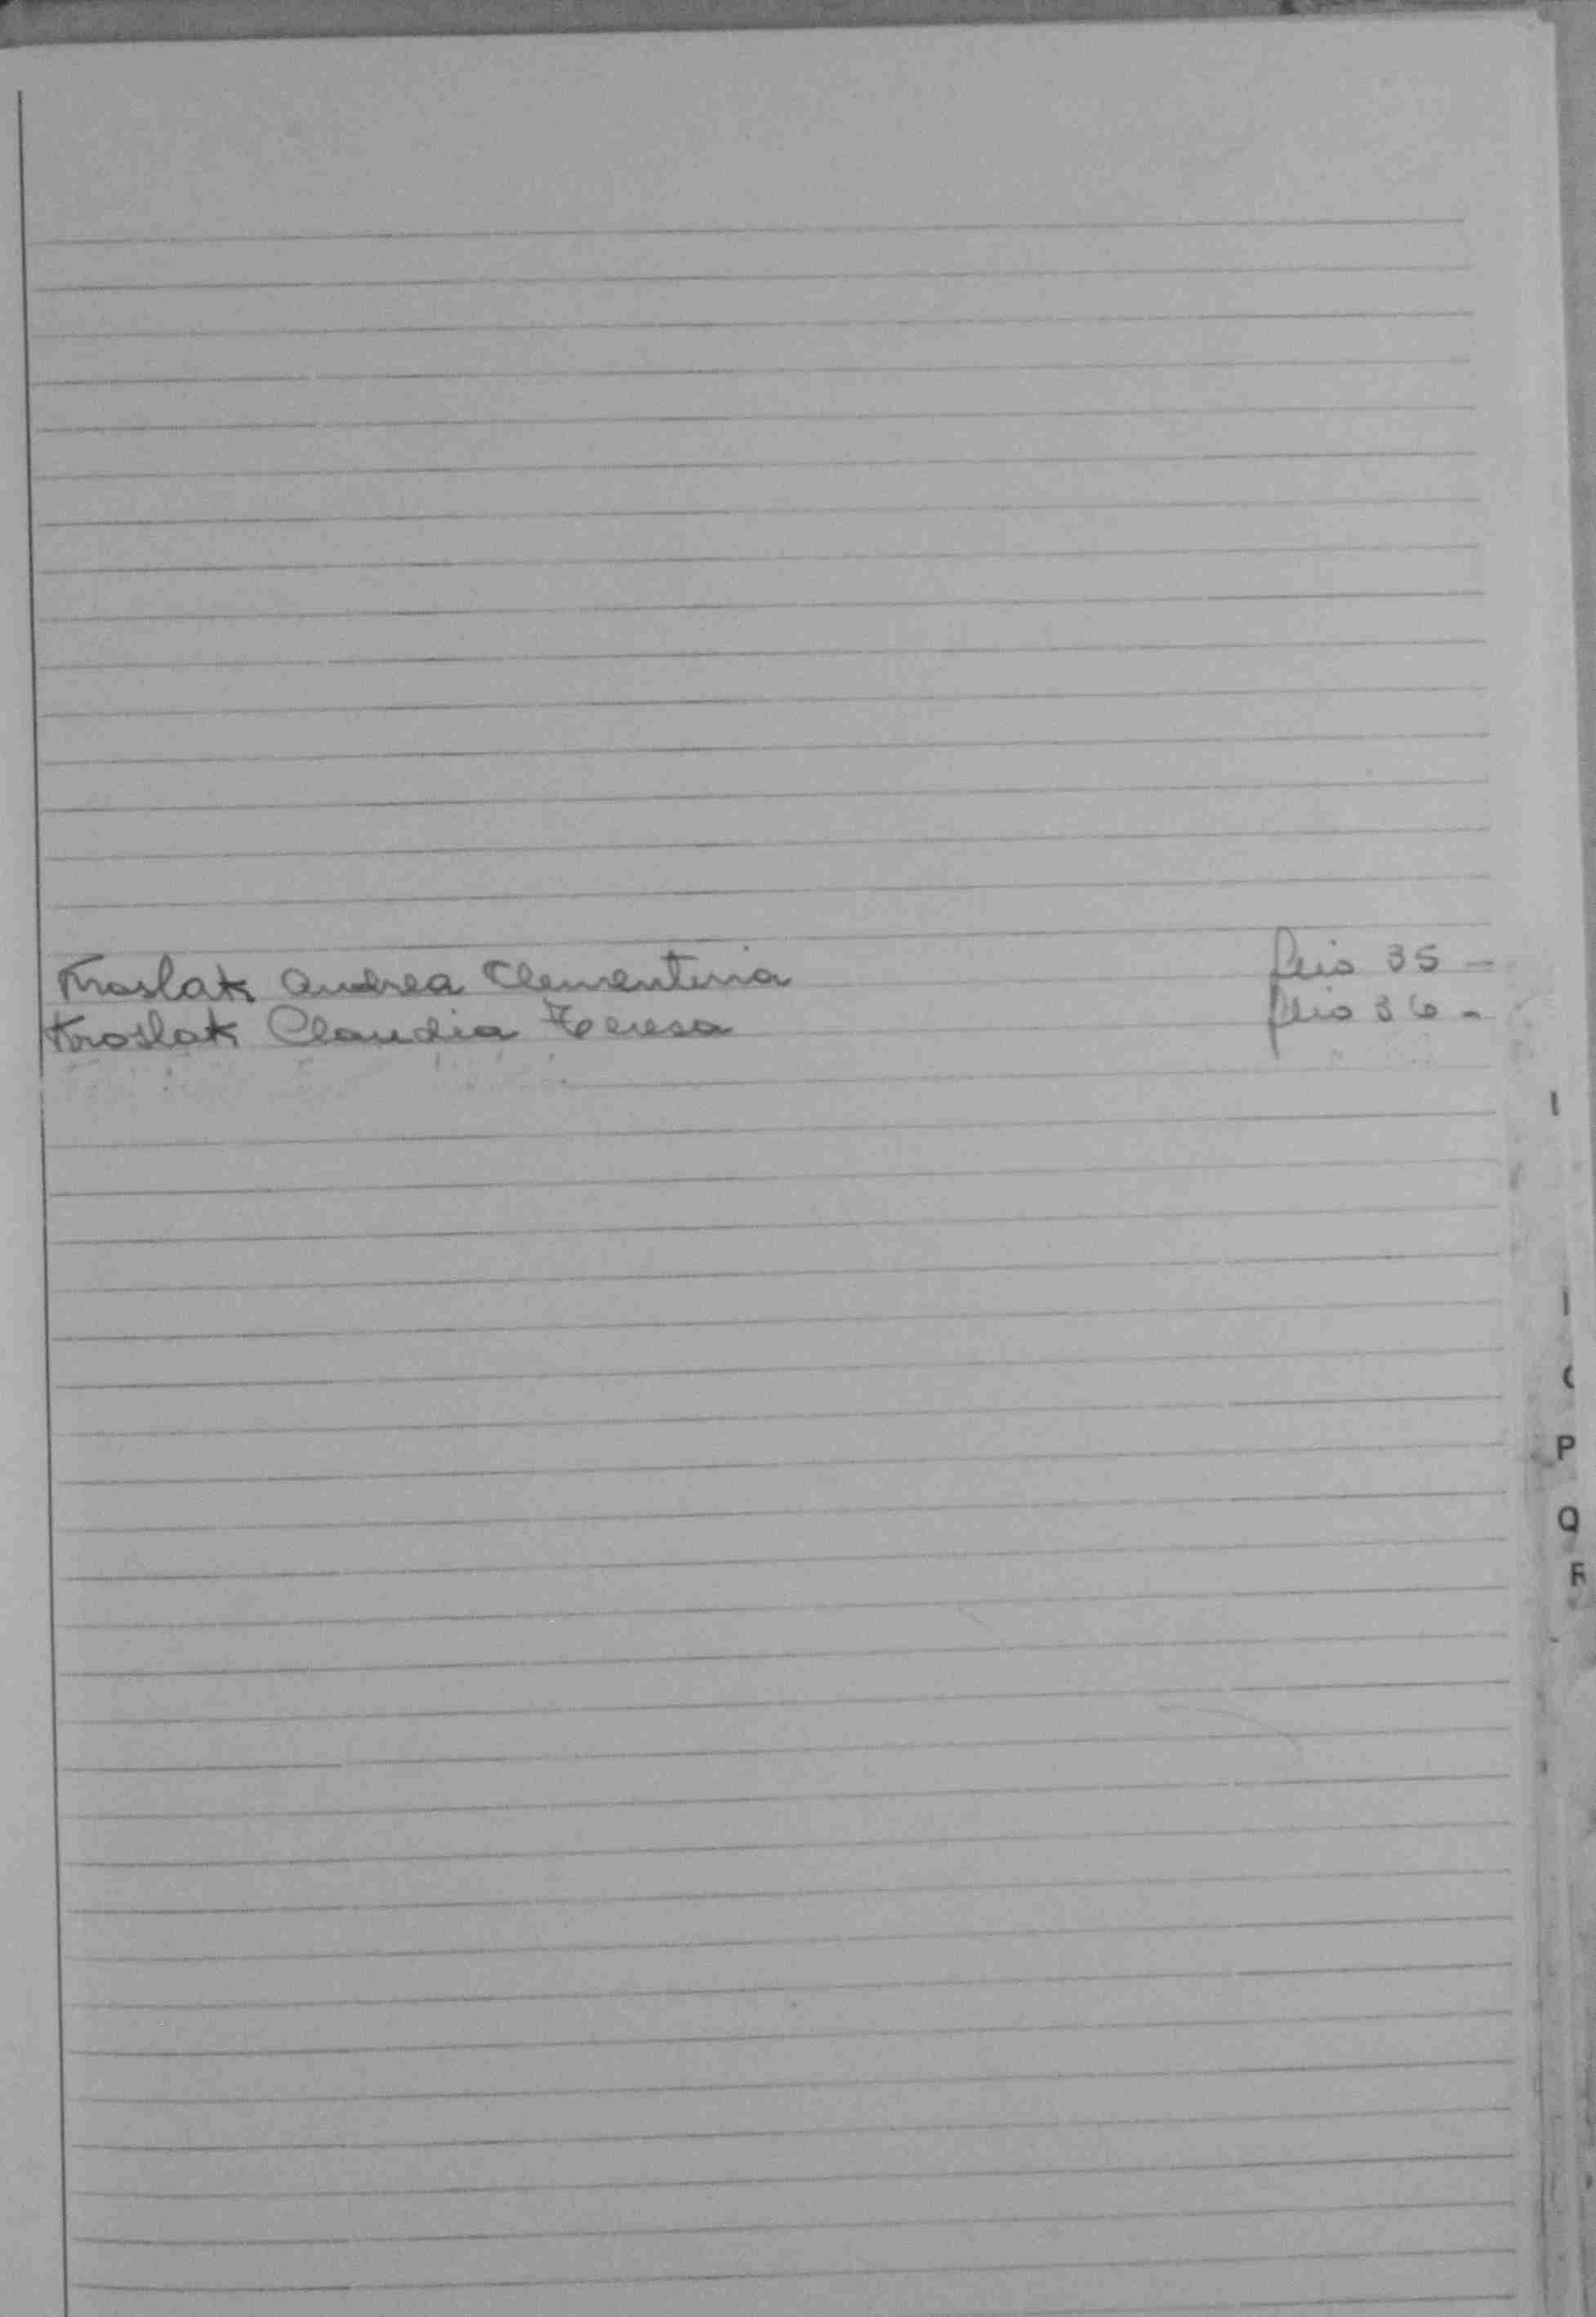 Kroslak Andrea Clementina folio 35 -
Kroslak Claudia Teresa folio 36 -
P
Q
R